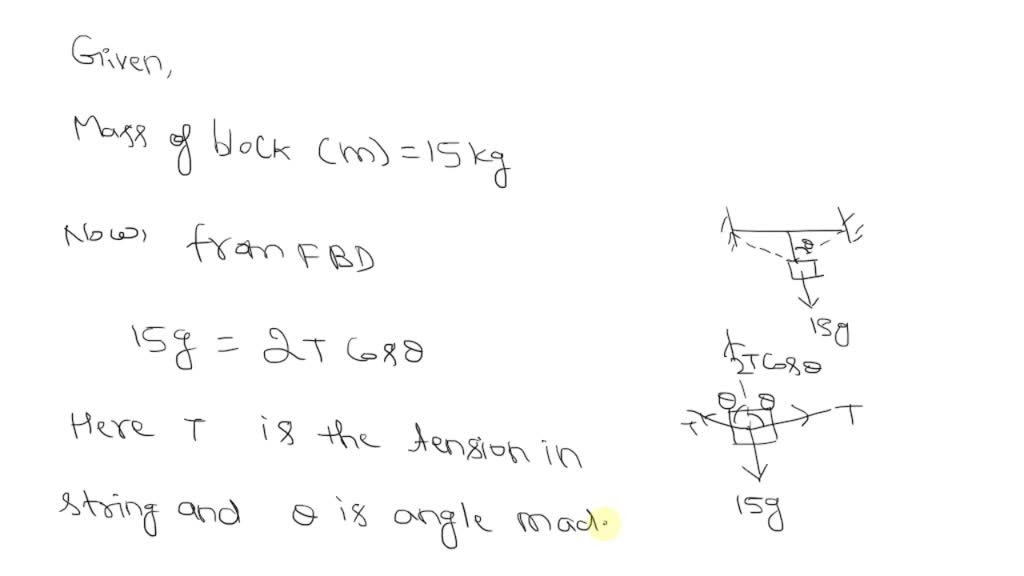 Given,
Mass of block (m) = 15kg
Now, from FBD
15g = 2T Cosθ
Here T is the tension in
string and θ is angle mad
θ
15g
2T Cosθ
θ θ
T T
15g